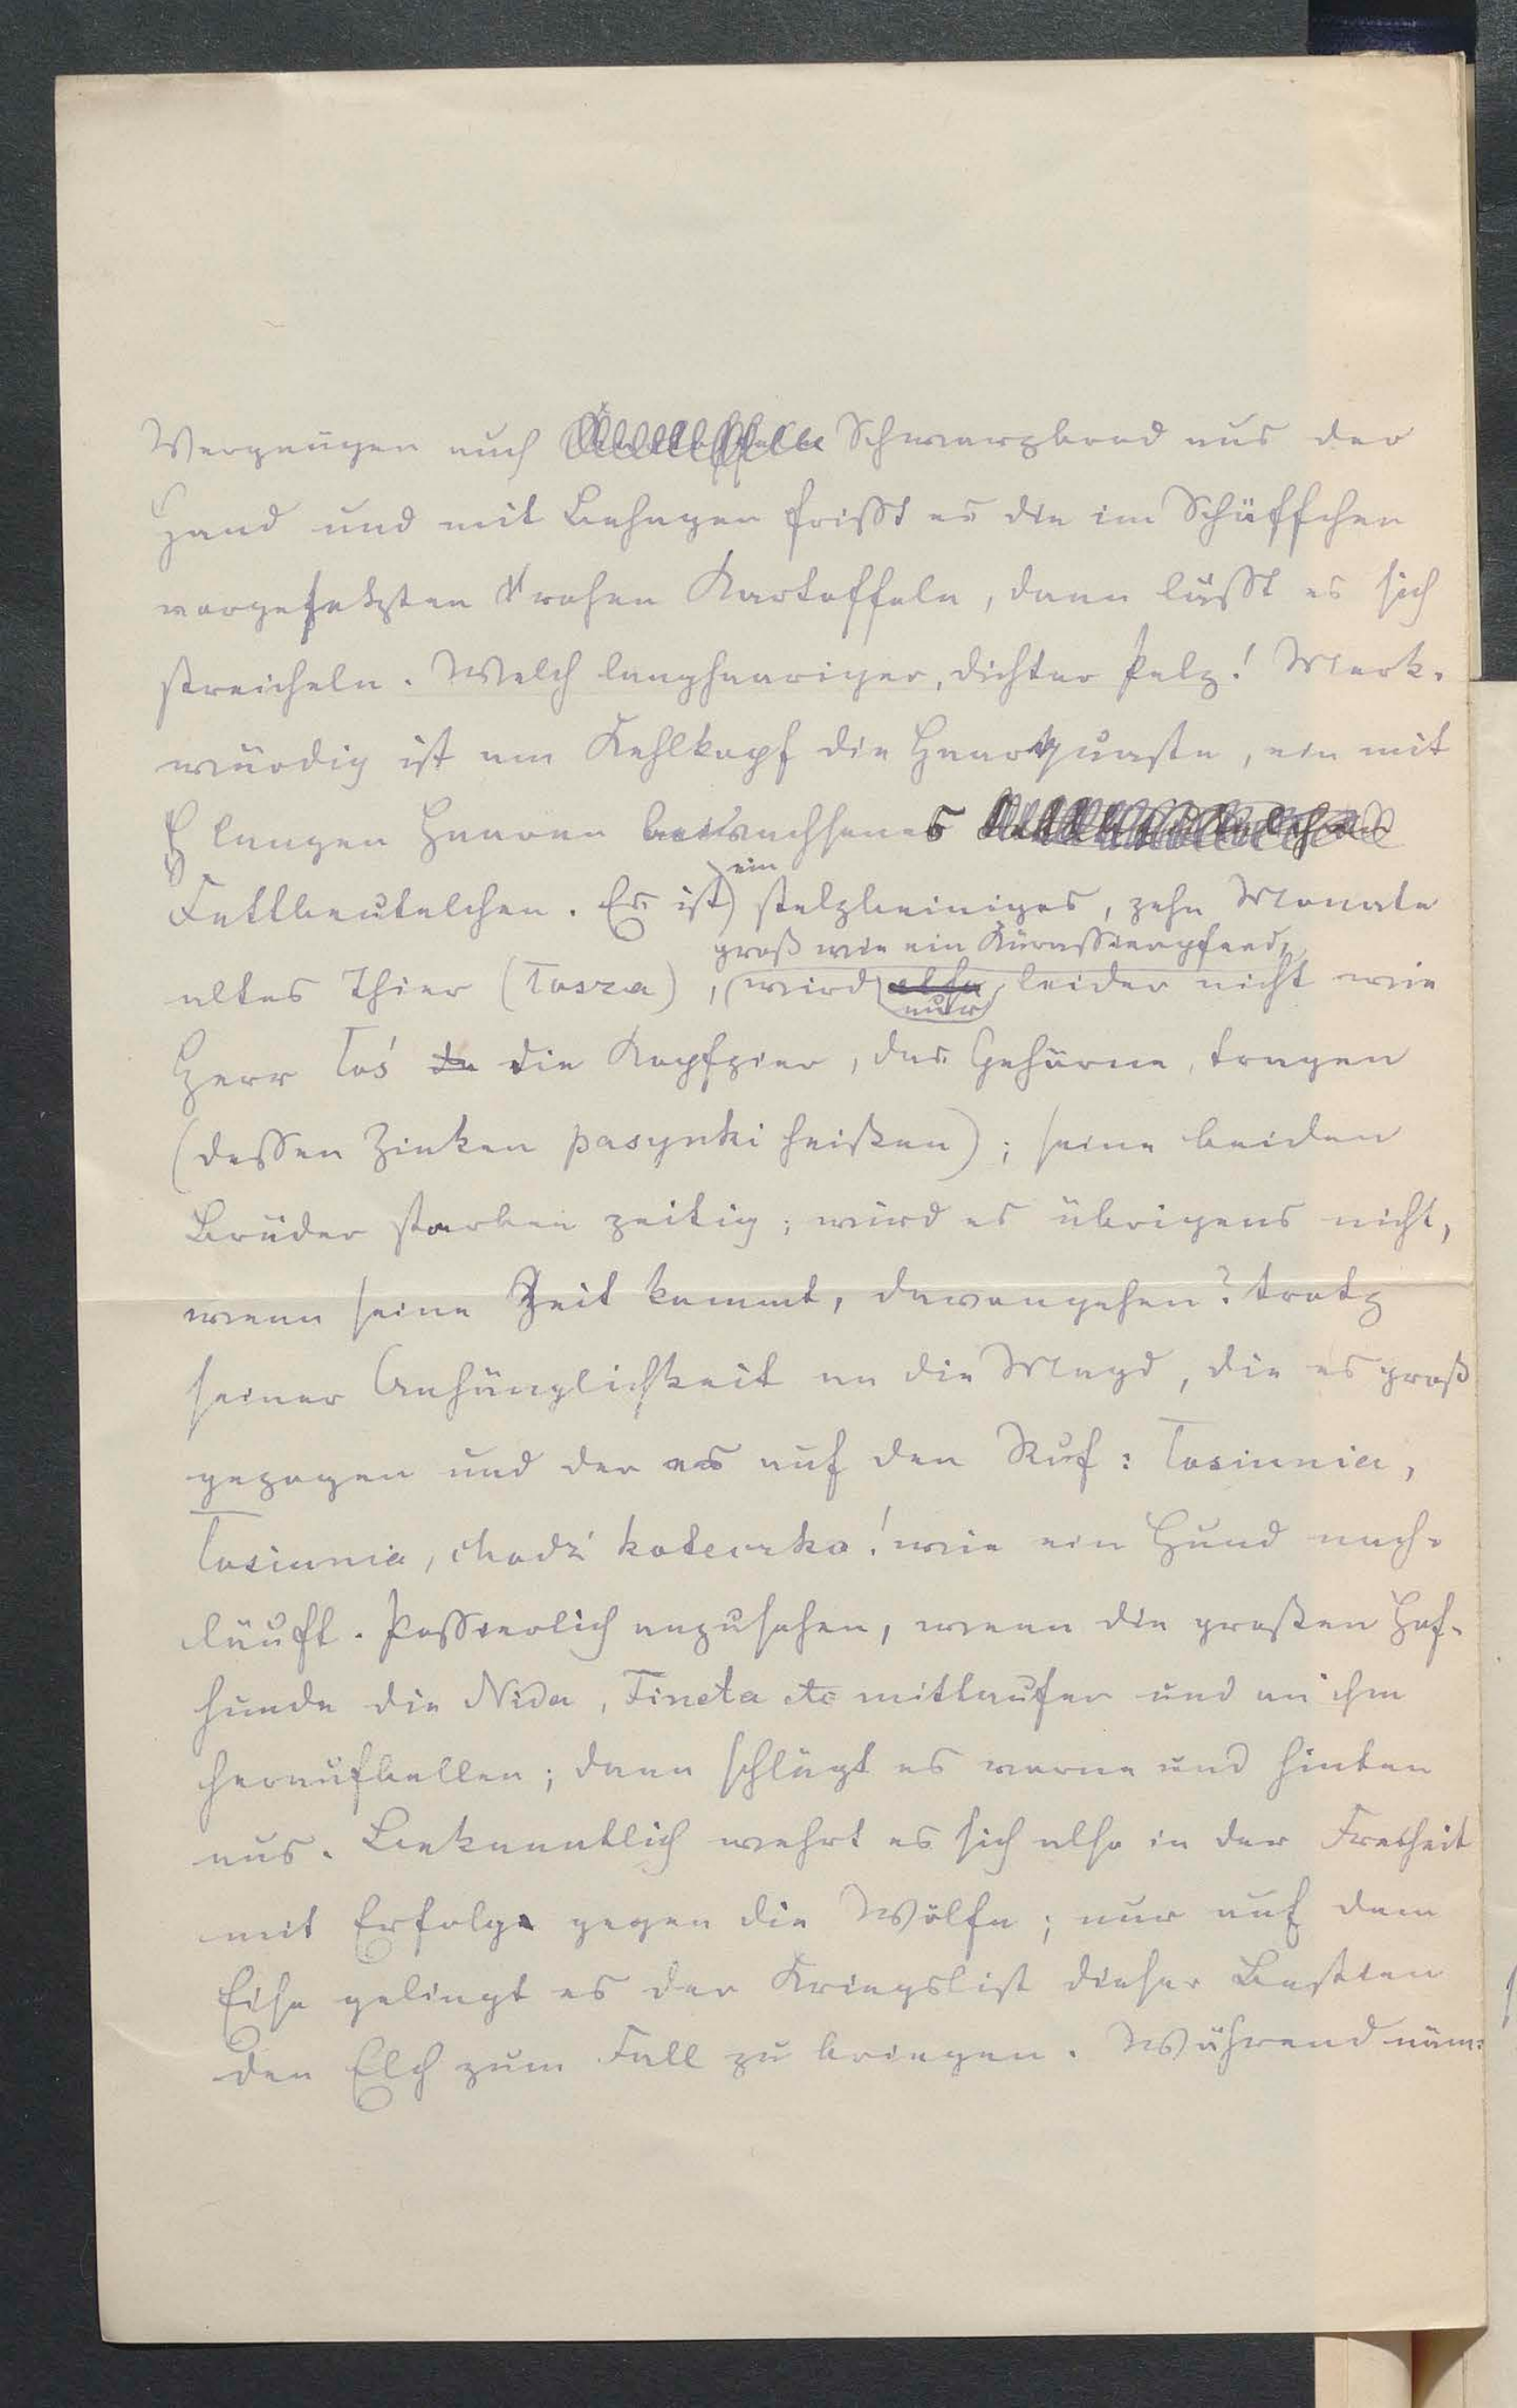 Vergnügen auch Schwarzbrod aus der
Hand und mit Behagen frisst es die im Schäffchen
vorgesetzten rohen Kartoffeln, dann lässt es sich
streicheln. Welch langhaariger, dichter Pelz! Merk-
würdig ist am Kehlkopf die Haarquaste, ein mit
langen Haaren bewachsenes
Fettbeutelchen. Es ist ein stelzbeiniges, zehn Monate
groß wie ein Kürassierpferd,
altes Thier (Łosza), wird also leider nicht wie
nur
Herr Łoś die Kopfzier, das Gehörne, tragen
(dessen Zinken pasynki heißen); seine beiden
Brüder starben zeitig; wird es übrigens nicht,
wenn seine Zeit kommt, davongehen? trotz
seiner Anhänglichkeit an die Magd, die es groß
gezogen und der es auf den Ruf: Łosiunia,
Łosiunia, chodź koteczko! wie ein Hund nach-
läuft. Possierlich anzusehen, wenn die großen Hof-
hunde die Nida, Fineta etc mitlaufen und an ihm
heraufbellen; dann schlägt es vorne und hinten
aus. Bekanntlich wehrt es sich also in der Freiheit
mit Erfolg gegen die Wölfe; nur auf dem
Eise gelingt es der Kriegslist dieser Bestien
den Elch zum Fall zu bringen. Während näm-